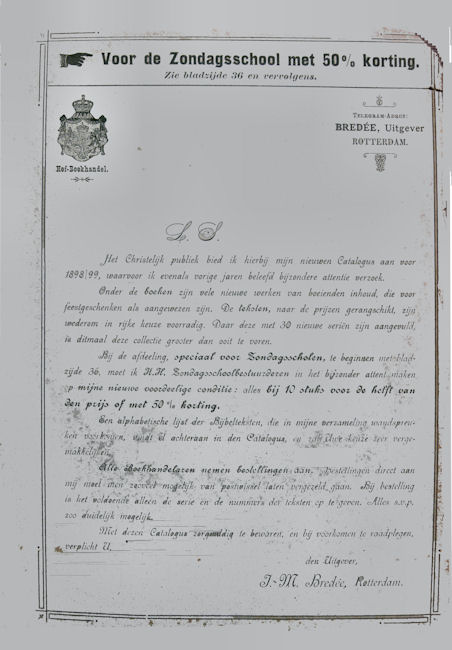 Voor de Zondagsschool met 50% korting.
Zie bladzijde 36 en vervolgens.
Hof-Boekhandel.
Telegram-Adres:
BREDÉE, Uitgever
ROTTERDAM.
L. S.
Het Christelijk publiek bied ik hierbij mijn nieuwen Catalogus aan voor
1898/99, waarvoor ik evenals vorige jaren beleefd bijzondere attentie verzoek.
Onder de boeken zijn vele nieuwe werken van boeienden inhoud, die voor
feestgeschenken als aangewezen zijn. De teksten, naar de prijzen gerangschikt, zijn
wederom in rijke keuze voorradig. Daar deze met 30 nieuwe seriën zijn aangevuld,
is ditmaal deze collectie grooter dan ooit te voren.
Bij de afdeeling, speciaal voor Zondagsscholen, te beginnen met bladzijde
zijde 36, moet ik H.H. Zondagsschoolbestuurderen in het bijzonder attent maken
op mijne nieuwe voordeelige conditie: alles bij 10 stuks voor de helft van
den prijs of met 50% korting.
Een alphabetische lijst der Bijbelteksten, die in mijne verzameling wandspreu-
ken voorkomen, vindt U achteraan in den Catalogus, en zal Uw keuze zeer verge-
makkelijken.
Alle Boekhandelaren nemen bestellingen aan. Bestellingen direct aan
mij moet men zooveel mogelijk van postwissel laten vergezeld gaan. Bij bestelling
is het voldoende alleen de serie en de nummers der teksten op te geven. Alles s.v.p.
zoo duidelijk mogelijk.
Met dezen Catalogus zorgvuldig te bewaren, en bij voorkomen te raadplegen,
verplicht U,
den Uitgever,
J. M. Bredée, Rotterdam.